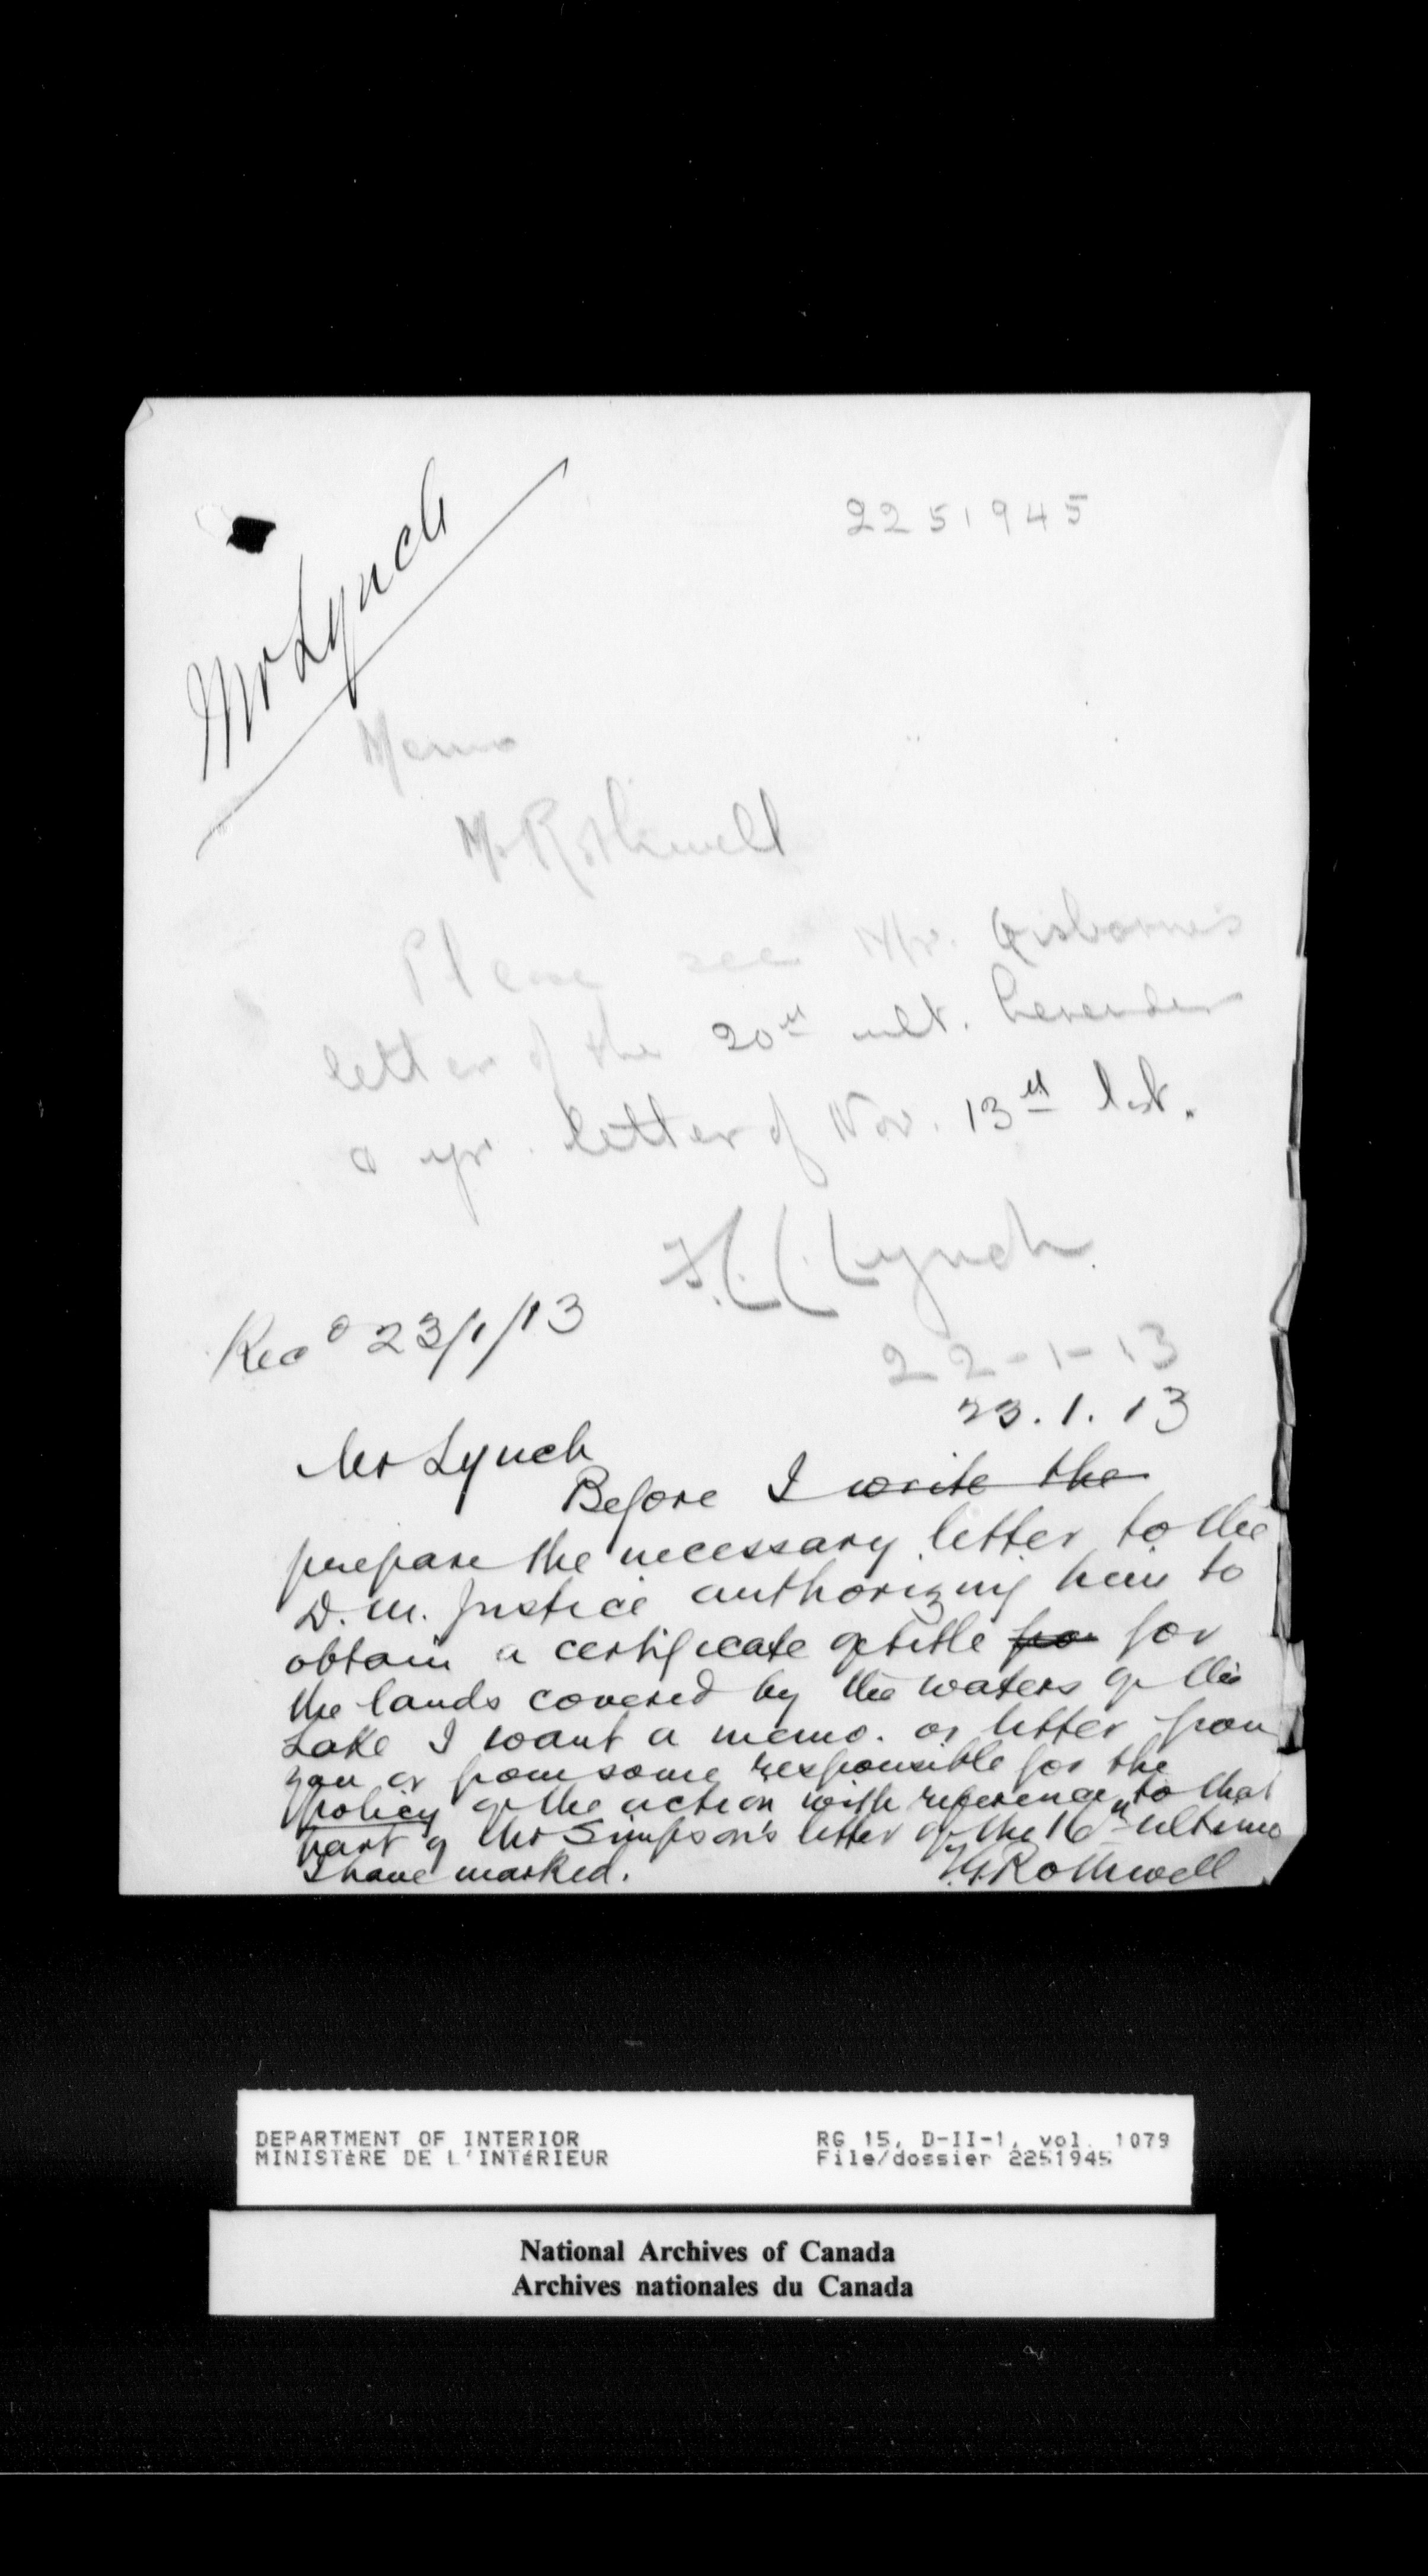 2251945
Mr Lynch
Memo
Mr Rothwell
Please see Mr. Gisborne's
letter of the 20th ult. hereunder
& yr. letter of Nov. 13th last.
F.C.C. Lynch
22-1-13
Recd 23/1/13
23.1.13
Mr Lynch
Before I write the
prepare the necessary letter to the
D. M. Justice authorizing him to
obtain a certificate of title for
the lands covered by the waters of the
Lake I want a memo. or letter from
you or from some responsible for the
policy of the action with reference to that
part of Mr Simpson's letter of the 16th ultimo
I have marked.
T.G. Rothwell
DEPARTMENT OF INTERIOR
MINISTÈRE DE L'INTÉRIEUR
RG 15, D-II-1, vol. 1079
File/dossier 2251945
National Archives of Canada
Archives nationales du Canada